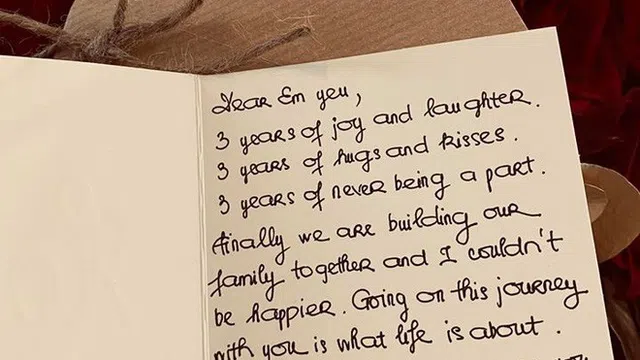 Dear Em yeu,
3 years of joy and laughter.
3 years of hugs and kisses.
3 years of never being a part.
Finally we are building our
family together and I couldn't
be happier. Going on this journey
with you is what life is about.
you